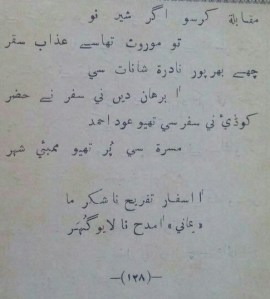 مقابلة كرسو اگر شير نو
تو موروث تهاسے عذاب سقر
چھے بھرپور نادرة شانات سي
اْا برهان دين ني سفر نے حضر
كوڈيْ ني سفر سي تهيو عود احمد
مسرة سي پُر تهيو ممبئي شهر
اْا اسفار تفريح نا شكر ما
«يماني» اْمدح نا لايو گُهَر
—(١٣٨)—